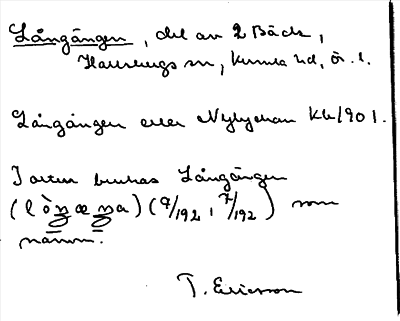 Långängen, del av 2 Bäck,
Hallsbergs sn, Kumla hd, ö. l.
Långängen eller Nylyckan Kk 1901.
I orten brukas Långängen
(lò̱ŋæŋa) (9/192, 7/192) som
namn.
T. Ericsson